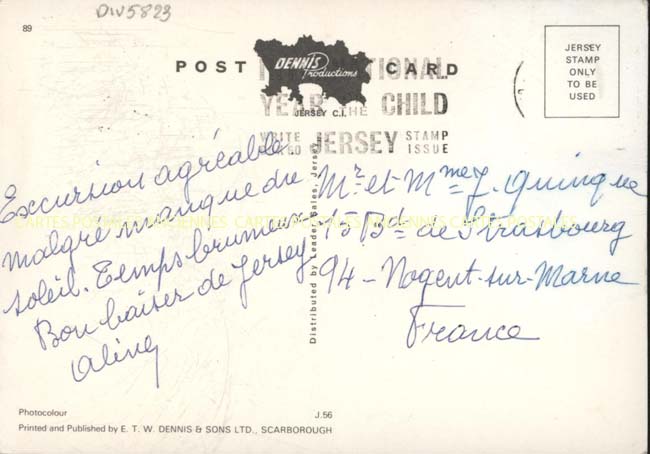 DIV5823
89
POST CARD
DENNIS
Productions
JERSEY C.I.
YEAR THE CHILD
JERSEY STAMP
ISSUE
JERSEY
STAMP
ONLY
TO BE
USED
Excursion agréable
malgré manque de
soleil. Temps brumeux
Bon baiser de Jersey
Mr et Mme J.
Bd de Strasbourg
94 - Nogent-sur-Marne
France
CARTES POSTALES ANCIENNES
Distributed by Leader Sales, Jersey
Photocolour
J.56
Printed and Published by E. T. W. DENNIS & SONS LTD., SCARBOROUGH